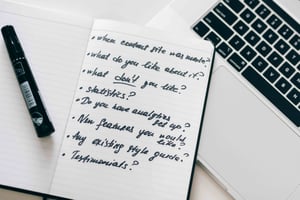 • When current site was made?
• what do you like about it?
• what don't you like?
• statistics?
• Do you have analytics
set up?
• New features you would
like?
• Any existing style guide?
• Testimonials?